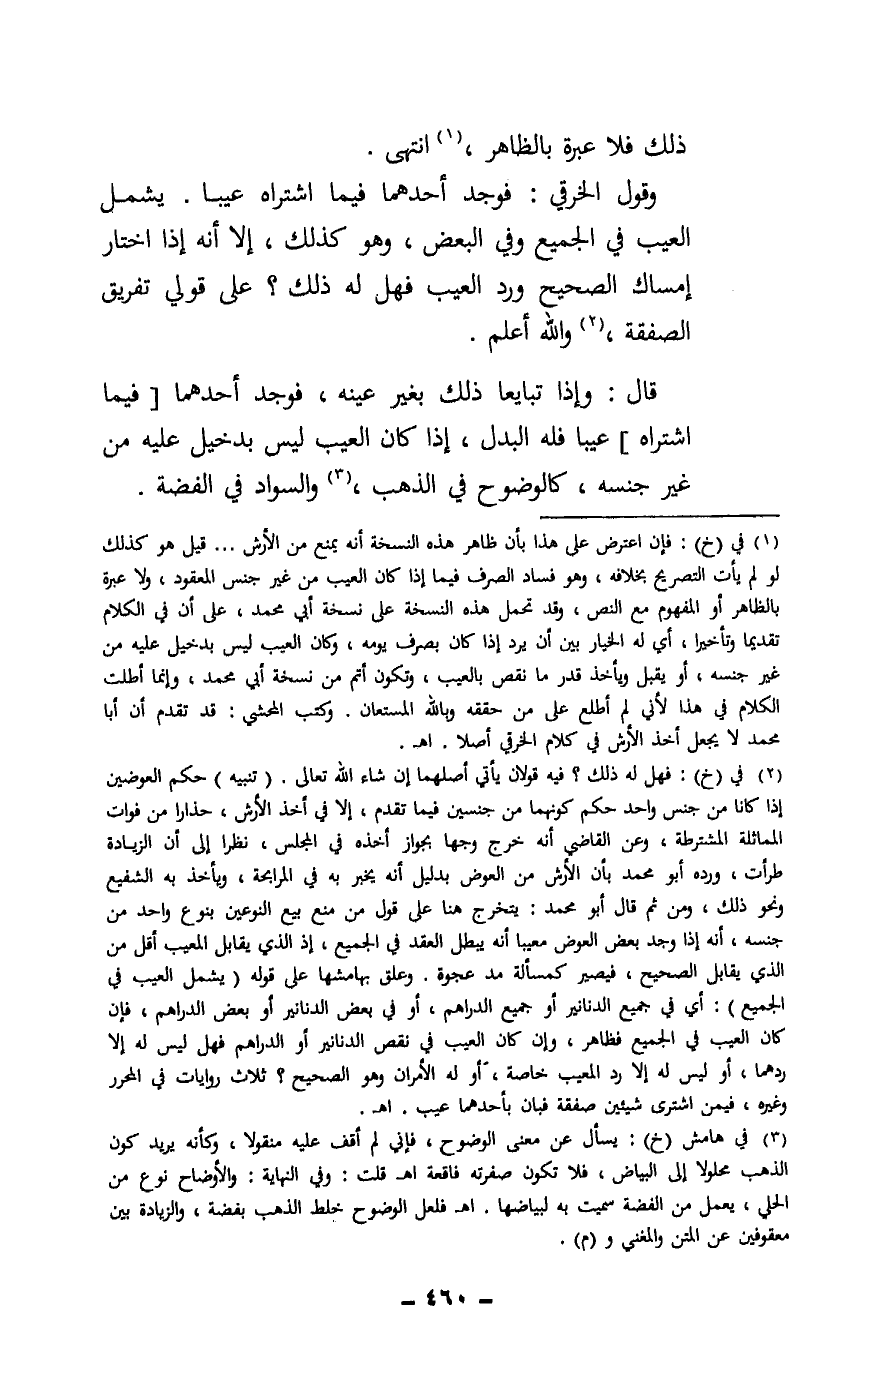 ذلك فلا عبرة بالظاهر ،(١) انتهى .
وقول الخرقي : فوجد أحدهما فيما اشتراه عيبا . يشمل
العيب في الجميع وفي البعض ، وهو كذلك ، إلا أنه إذا اختار
إمساك الصحيح ورد العيب فهل له ذلك ؟ على قولي تفريق
الصفقة ،(٢) والله أعلم .
قال : وإذا تبايعا ذلك بغير عينه ، فوجد أحدهما [ فيما
اشتراه ] عيبا فله البدل ، إذا كان العيب ليس بدخيل عليه من
غير جنسه ، كالوضوح في الذهب ،(٣) والسواد في الفضة .
(١) في (خ) : فإن اعترض على هذا بأن ظاهر هذه النسخة أنه يمنع من الأرش ... قيل هو كذلك
لو لم يأت التصريح بخلافه ، وهو فساد الصرف فيما إذا كان العيب من غير جنس المعقود ، ولا عبرة
بالظاهر أو المفهوم مع النص ، وقد تحمل هذه النسخة على نسخة أبي محمد ، على أن في الكلام
تقديما وتأخيرا ، أي له الخيار بين أن يرد إذا كان بصرف يومه ، وكان العيب ليس بدخيل عليه من
غير جنسه ، أو يقبل ويأخذ قدر ما نقص بالعيب ، وتكون أتم من نسخة أبي محمد ، وإنما أطلت
الكلام في هذا لأني لم أطلع على من حققه وبالله المستعان . وكتب المحشي : قد تقدم أن أبا
محمد لا يجعل أخذ الأرش في كلام الخرقي أصلا . اهـ .
(٢) في (خ) : فهل له ذلك ؟ فيه قولان يأتي أصلهما إن شاء الله تعالى . ( تنبيه ) حكم العوضين
إذا كانا من جنس واحد حكم كونهما من جنسين فيما تقدم ، إلا في أخذ الأرش ، حذارا من فوات
المماثلة المشترطة ، وعن القاضي أنه خرج وجها بجواز أخذه في المجلس ، نظرا إلى أن الزيادة
طرأت ، ورده أبو محمد بأن الأرش من العوض بدليل أنه يخبر به في المرابحة ، ويأخذ به الشفيع
ونحو ذلك ، ومن ثم قال أبو محمد : يتخرج هنا على قول من منع بيع النوعين بنوع واحد من
جنسه ، أنه إذا وجد بعض العوض معيبا أنه يبطل العقد في الجميع ، إذ الذي يقابل المعيب أقل من
الذي يقابل الصحيح ، فيصير كمسألة مد عجوة . وعلق بهامشها على قوله ( يشمل العيب في
الجميع ) : أي في جميع الدنانير أو جميع الدراهم ، أو في بعض الدنانير أو بعض الدراهم ، فإن
كان العيب في الجميع فظاهر ، وإن كان العيب في نقص الدنانير أو الدراهم فهل ليس له إلا
ردهما ، أو ليس له إلا رد المعيب خاصة ، أو له الأمران وهو الصحيح ؟ ثلاث روايات في المحرر
وغيره ، فيمن اشترى شيئين صفقة فبان بأحدهما عيب . اهـ .
(٣) في هامش (خ) : يسأل عن معنى الوضوح ، فإني لم أقف عليه منقولا ، وكأنه يريد كون
الذهب محلولا إلى البياض ، فلا تكون صفرته فاقعة اهـ قلت : وفي النهاية : والأوضاح نوع من
الحلي ، يعمل من الفضة سميت به لبياضها . اهـ فلعل الوضوح خلط الذهب بفضة ، والزيادة بين
معقوفين عن المتن والمغني و (م) .
– ٤٦٠ –